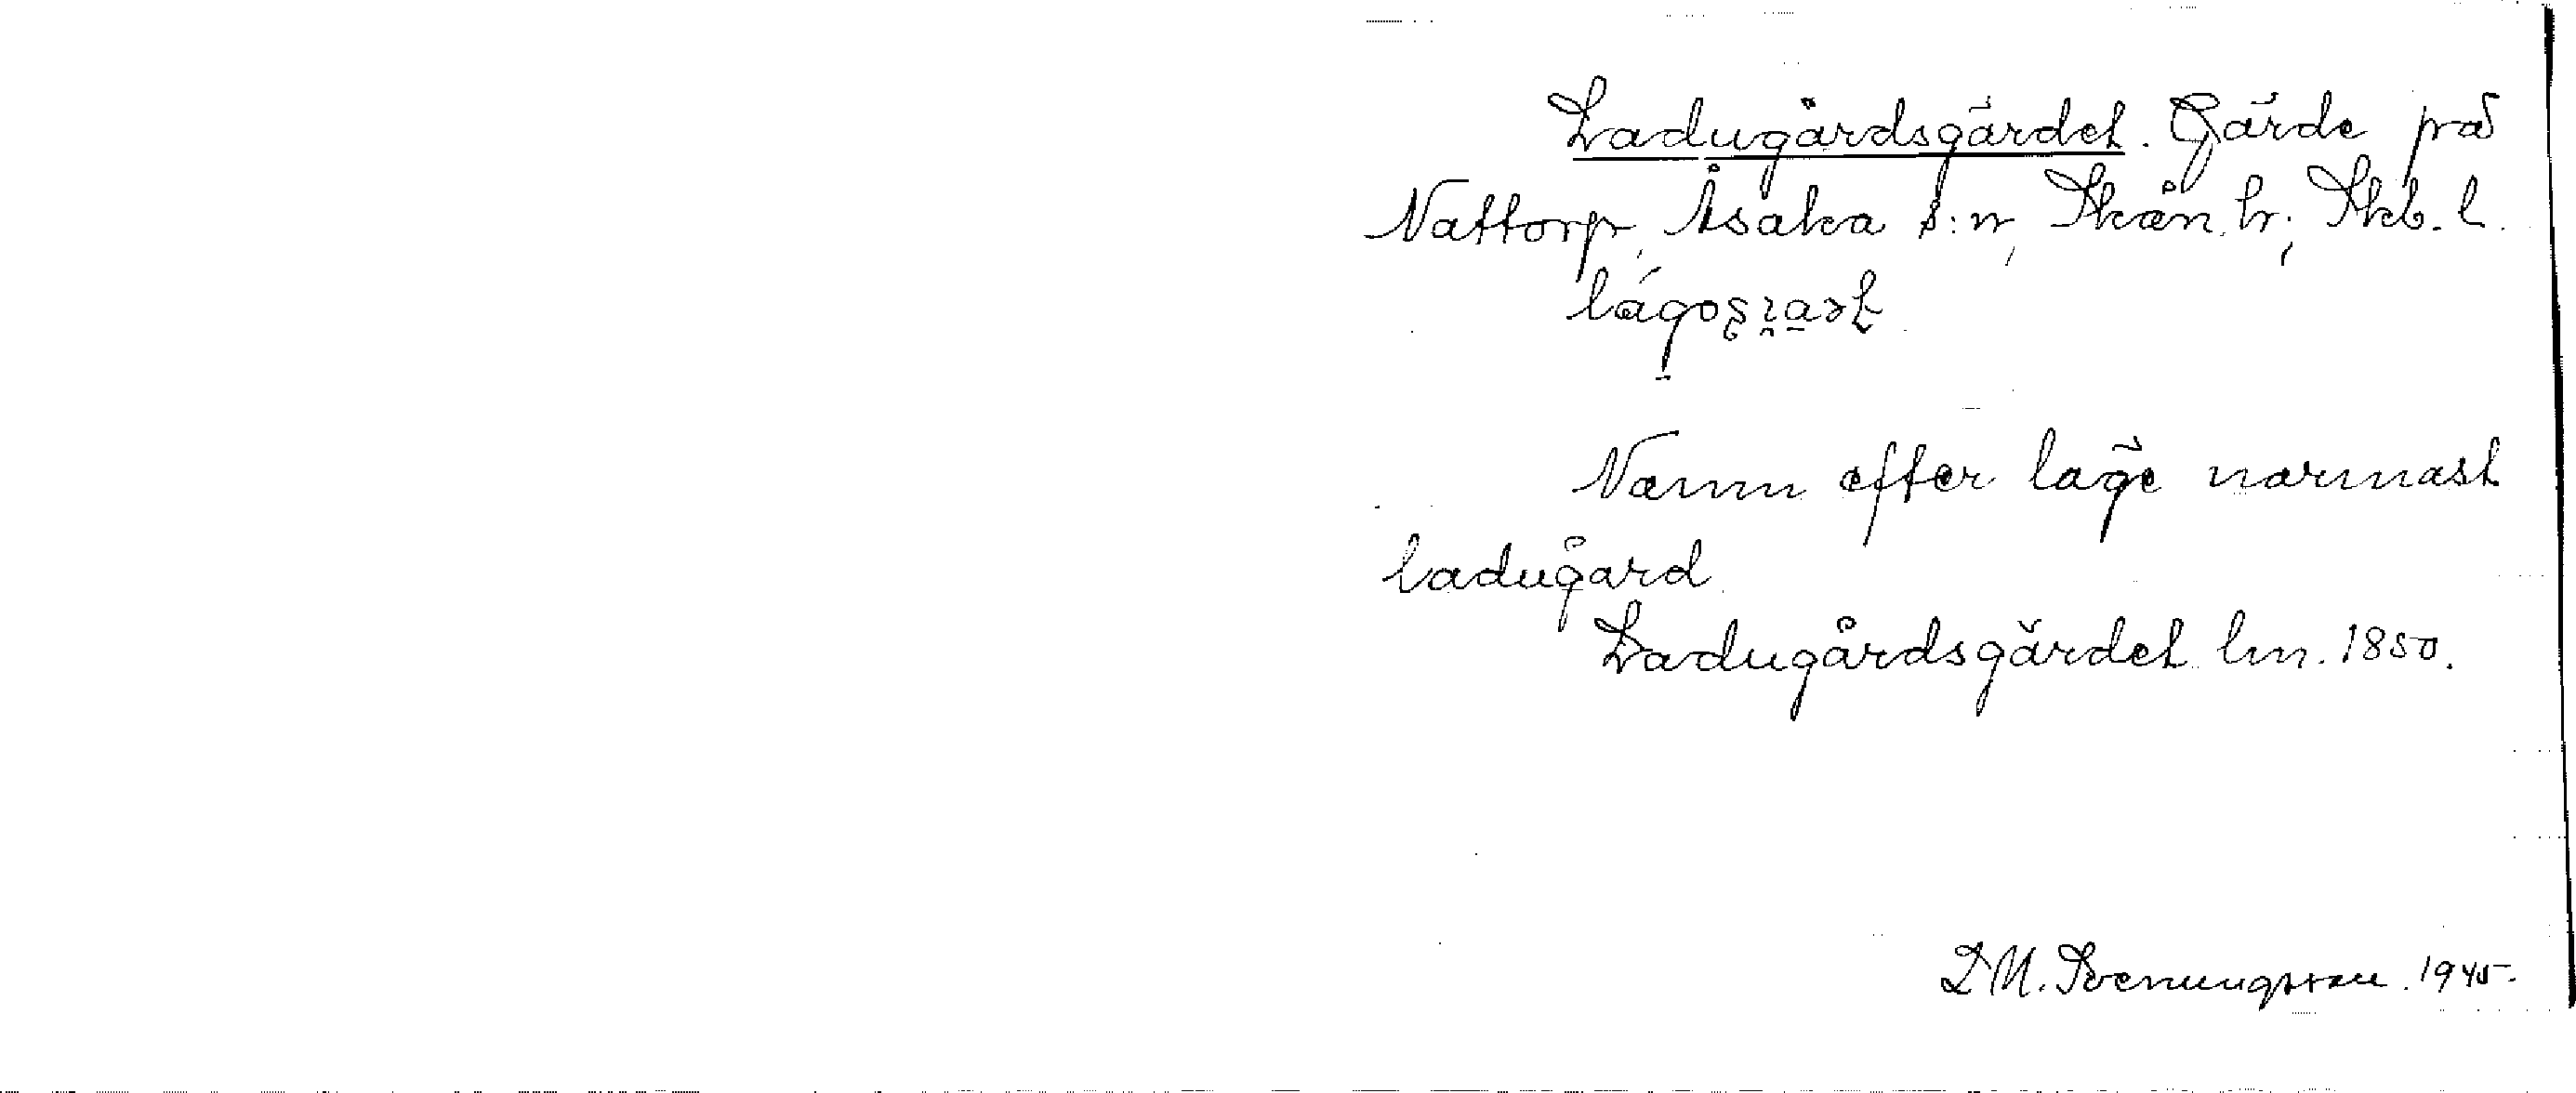 Ladugårdsgärdet. Gärde på
Nattorp, Åsaka s:n, Skån. hr; Skb. l.
Namn efter läge närmast
ladugård.
Ladugårdsgärdet lm. 1850.
D M. Svenungsson. 1945.